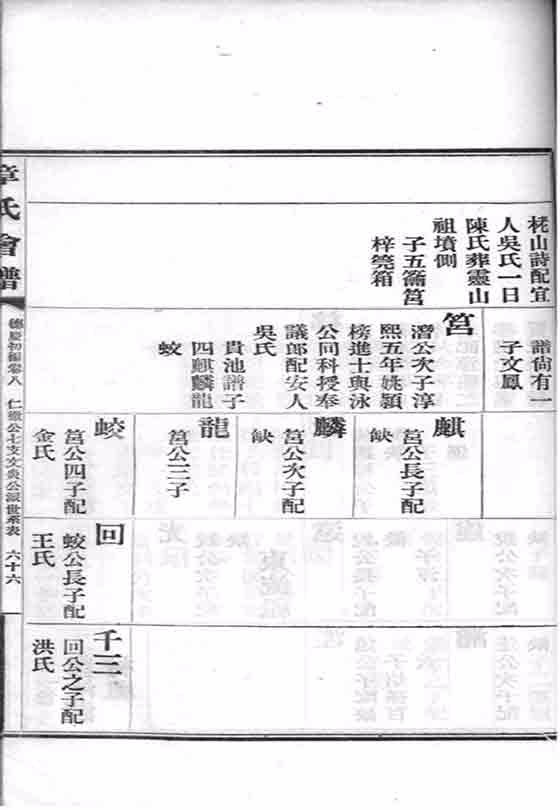 山詩配宜
人吳氏一日
陳氏葬靈山
祖墳側
子五籥筥
梓筦箱
譜尚有一
子文鳳
筥
潛公次子淳
熙五年姚穎
榜進士與泳
公同科授奉
議郎配安人
吳氏
貴池譜子
四麒麟龍
蛟
麒
筥公長子配
缺
麟
筥公次子配
缺
龍
筥公三子
蛟
筥公四子配
金氏
回
蛟公長子配
王氏
千三
回公之子配
洪氏
章氏會譜
德慶初編卷八
公七支文公派世系表
六十六